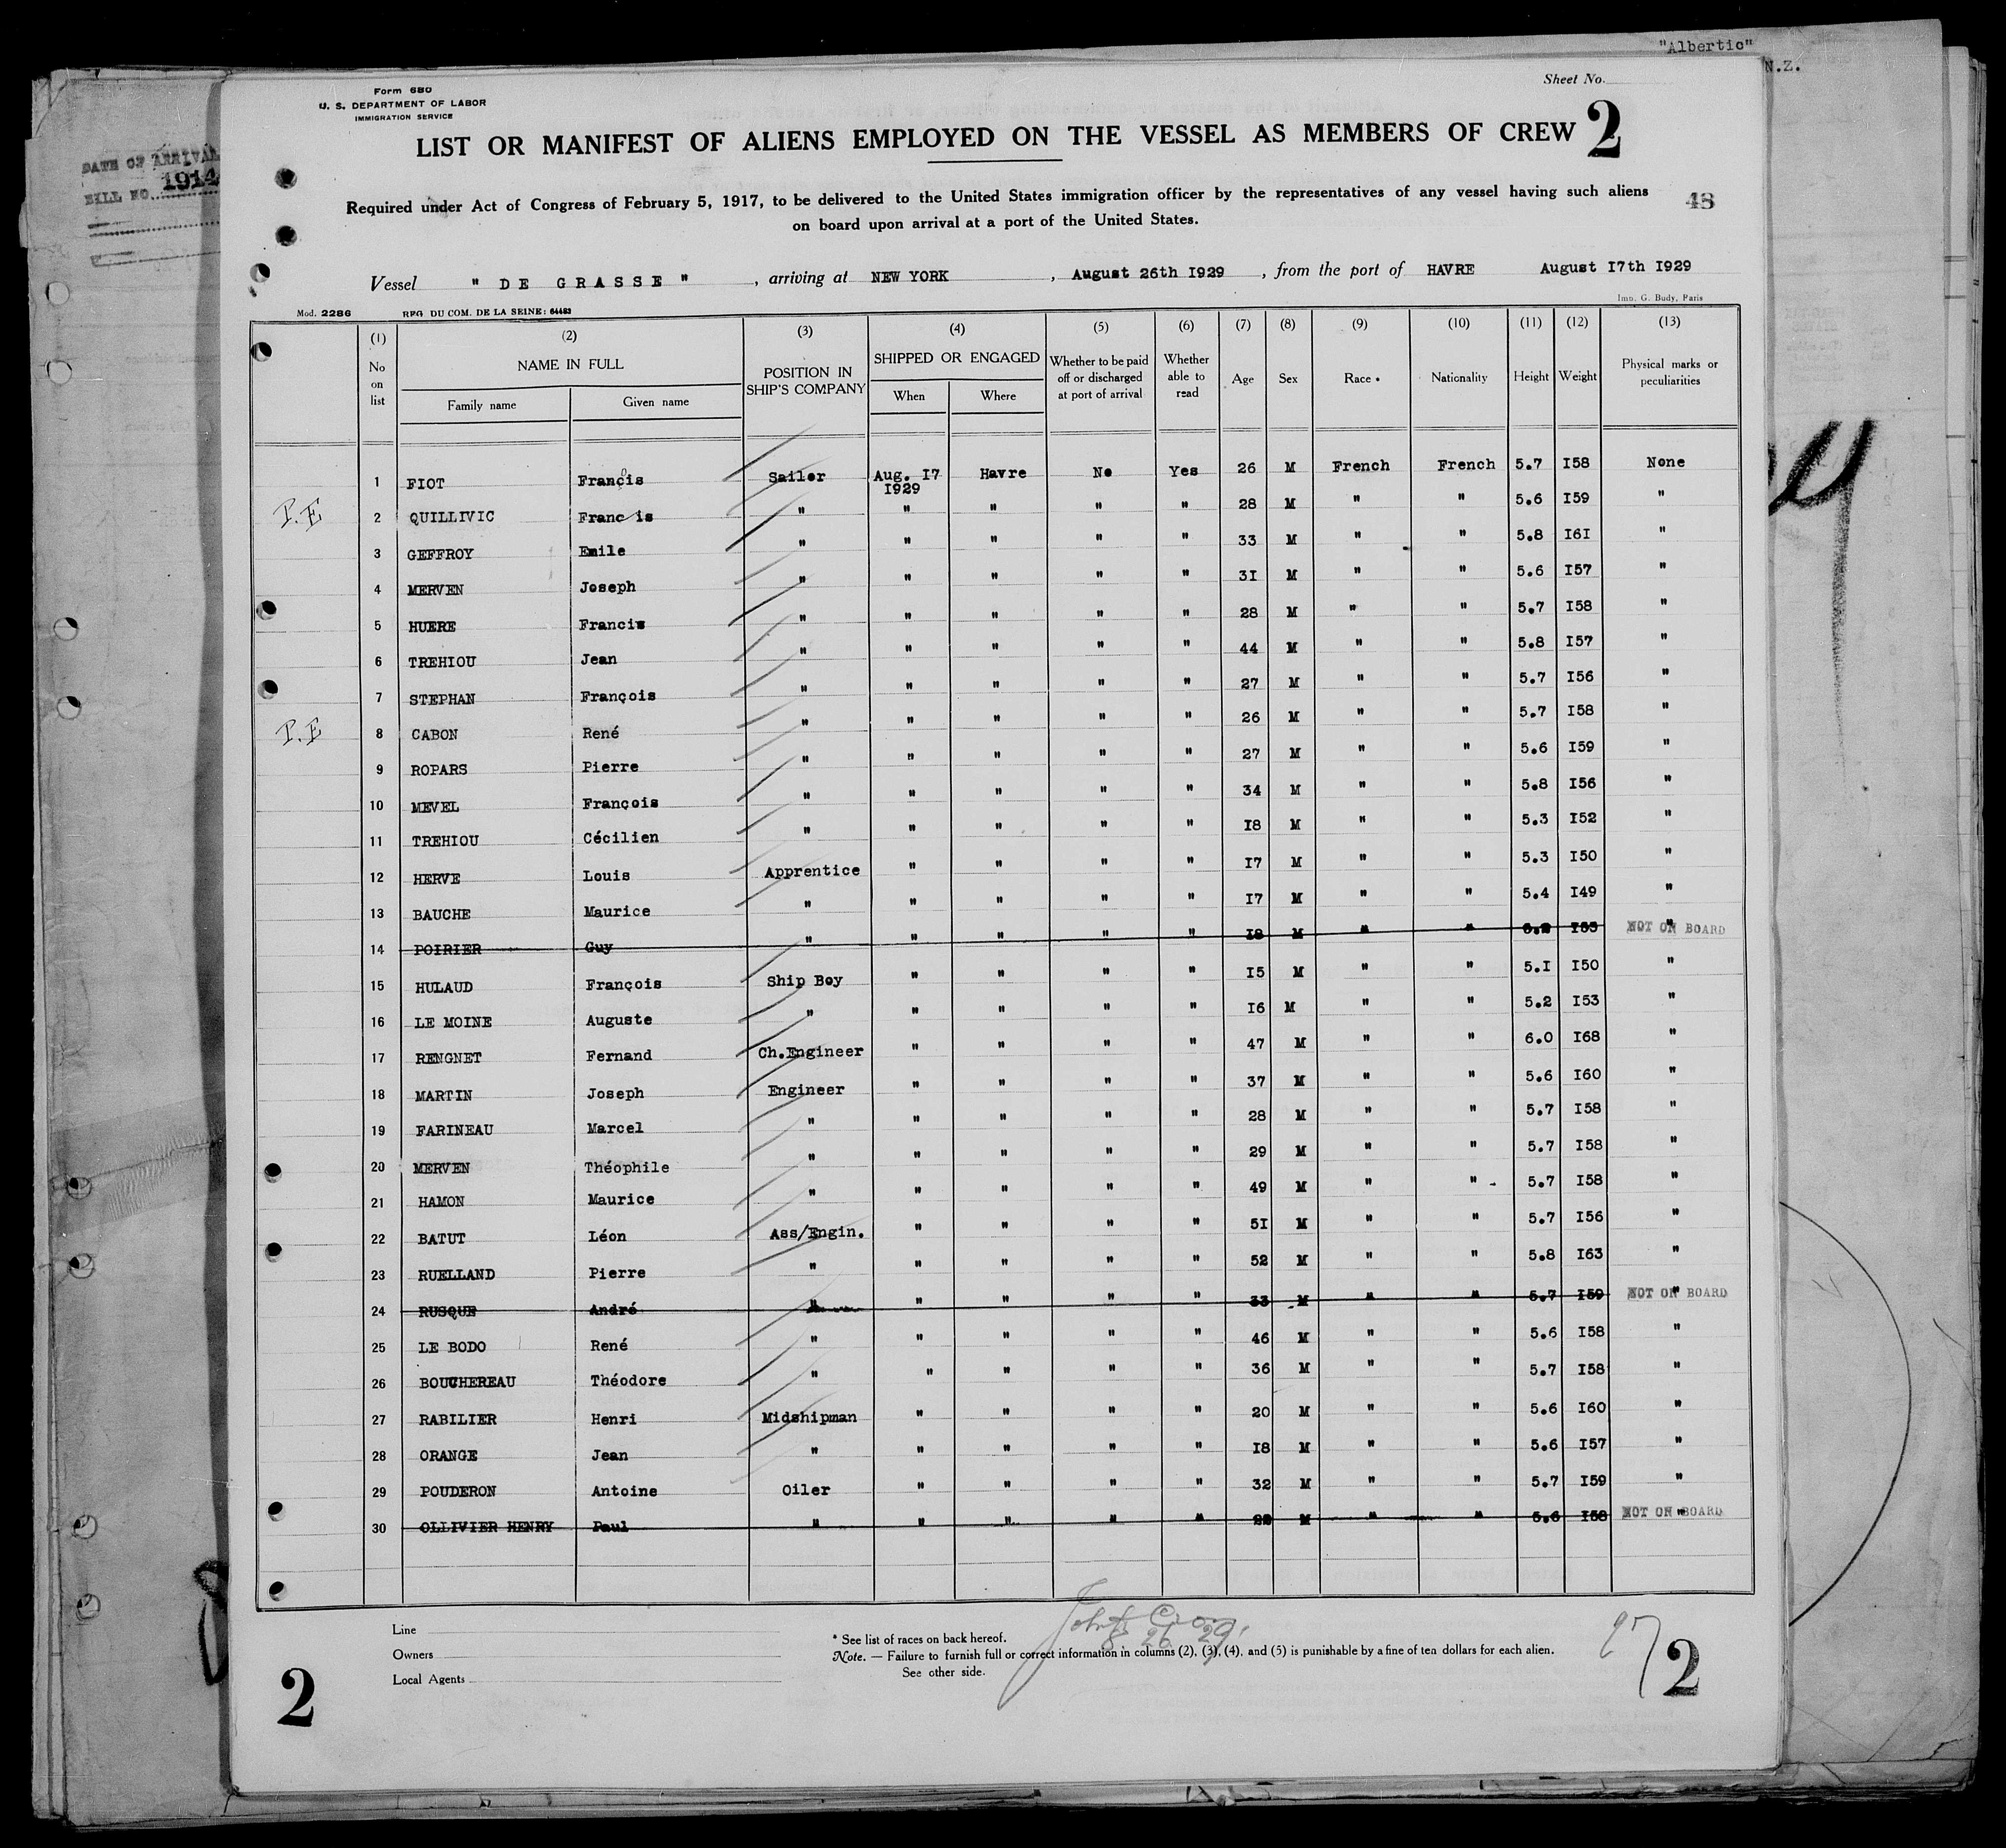 "Albertic"
N.Z.
DATE OF ARRIVAL
BILL NO. 1914
Form 680
U. S. DEPARTMENT OF LABOR
IMMIGRATION SERVICE
Sheet No.
LIST OR MANIFEST OF ALIENS EMPLOYED ON THE VESSEL AS MEMBERS OF CREW 2
Required under Act of Congress of February 5, 1917, to be delivered to the United States immigration officer by the representatives of any vessel having such aliens
on board upon arrival at a port of the United States.
48
Vessel " DE GRASSE " , arriving at NEW YORK , August 26th I929 , from the port of HAVRE August I7th I929
Imp. G. Body, Paris
Mod. 2286 RPG DU COM. DE LA SEINE: 64483
(1) (2) (3) (4) (5) (6) (7) (8) (9) (10) (11) (12) (13)
No on list NAME IN FULL Family name Given name POSITION IN SHIP'S COMPANY SHIPPED OR ENGAGED When Where Whether to be paid off or discharged at port of arrival Whether able to read Age Sex Race * Nationality Height Weight Physical marks or peculiarities
1 FIOT Francis Sailor Aug. I7 I929 Havre No Yes 26 M French French 5.7 I58 None
P.E 2 QUILLIVIC Franc is " " " " " 28 M " " 5.6 I59 "
3 GEFFROY Emile " " " " " 33 M " " 5.8 I6I "
4 MERVEN Joseph " " " " " 3I M " " 5.6 I57 "
5 HUERE Francis " " " " " 28 M " " 5.7 I58 "
6 TREHIOU Jean " " " " " 44 M " " 5.8 I57 "
7 STEPHAN François " " " " " 27 M " " 5.7 I56 "
P.E 8 CABON René " " " " " 26 M " " 5.7 I58 "
9 ROPARS Pierre " " " " " 27 M " " 5.6 I59 "
10 MEVEL François " " " " " 34 M " " 5.8 I56 "
11 TREHIOU Cécilien " " " " " I8 M " " 5.3 I52 "
12 HERVE Louis Apprentice " " " " I7 M " " 5.3 I50 "
13 BAUCHE Maurice " " " " " I7 M " " 5.4 I49 "
14 POIRIER Guy " " " " " I8 M " " I53 " NOT ON BOARD
15 HULAUD François Ship Boy " " " " I5 M " " 5.I I50 "
16 LE MOINE Auguste " " " " " I6 M " " 5.2 I53 "
17 RENGNET Fernand Ch.Engineer " " " " 47 M " " 6.0 I68 "
18 MARTIN Joseph Engineer " " " " 37 M " " 5.6 I60 "
19 FARINEAU Marcel " " " " " 28 M " " 5.7 I58 "
20 MERVEN Théophile " " " " " 29 M " " 5.7 I58 "
21 HAMON Maurice " " " " " 49 M " " 5.7 I58 "
22 BATUT Léon Ass/Engin. " " " " 5I M " " 5.7 I56 "
23 RUELLAND Pierre " " " " " 52 M " " 5.8 I63 "
24 RUSQUE André " " " " " 33 M " " 5.7 I59 " NOT ON BOARD
25 LE BODO René " " " " " 46 M " " 5.6 I58 "
26 BOUCHEREAU Théodore " " " " " 36 M " " 5.7 I58 "
27 RABILIER Henri Midshipman " " " " 20 M " " 5.6 I60 "
28 ORANGE Jean " " " " " I8 M " " 5.6 I57 "
29 POUDERON Antoine Oiler " " " " 32 M " " 5.7 I59 "
30 OLLIVIER HENRY Paul " " " " " M " " 5.6 I58 " NOT ON BOARD
Line
Owners
Local Agents
* See list of races on back hereof.
Note. — Failure to furnish full or correct information in columns (2), (3), (4), and (5) is punishable by a fine of ten dollars for each alien.
See other side.
8 26 29
27
2 2